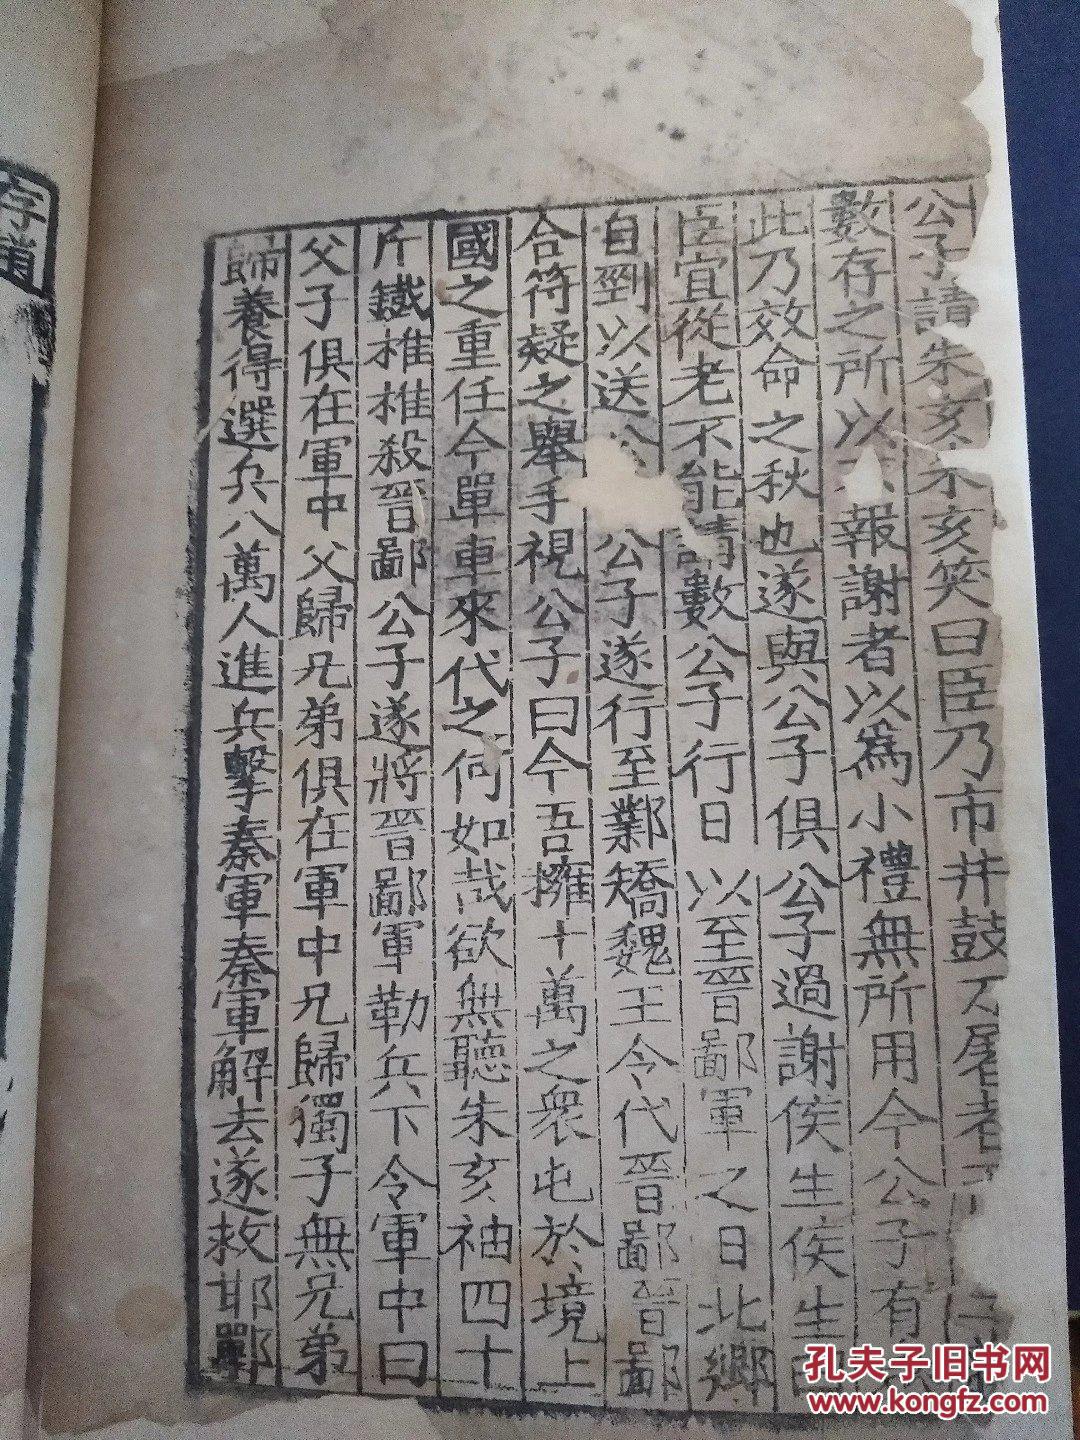 公子請朱亥朱亥笑曰臣乃市井鼓刀屠者
數存之所以報謝者以為小禮無所用今公子有
此乃效命之秋也遂與公子俱公子過謝侯生侯生曰
臣宜從老不能請數公子行日以至晉鄙軍之日北鄉
自剄以送公子遂行至鄴矯魏王令代晉鄙晉鄙
合符疑之舉手視公子曰今吾擁十萬之衆屯於境上
國之重任今單車來代之何如哉欲無聽朱亥袖四十
斤鐵椎椎殺晉鄙公子遂將晉鄙軍勒兵下令軍中曰
父子俱在軍中父歸兄弟俱在軍中兄歸獨子無兄弟
歸養得選兵八萬人進兵擊秦軍秦軍解去遂救邯鄲
存趙
孔夫子旧书网
www.kongfz.com